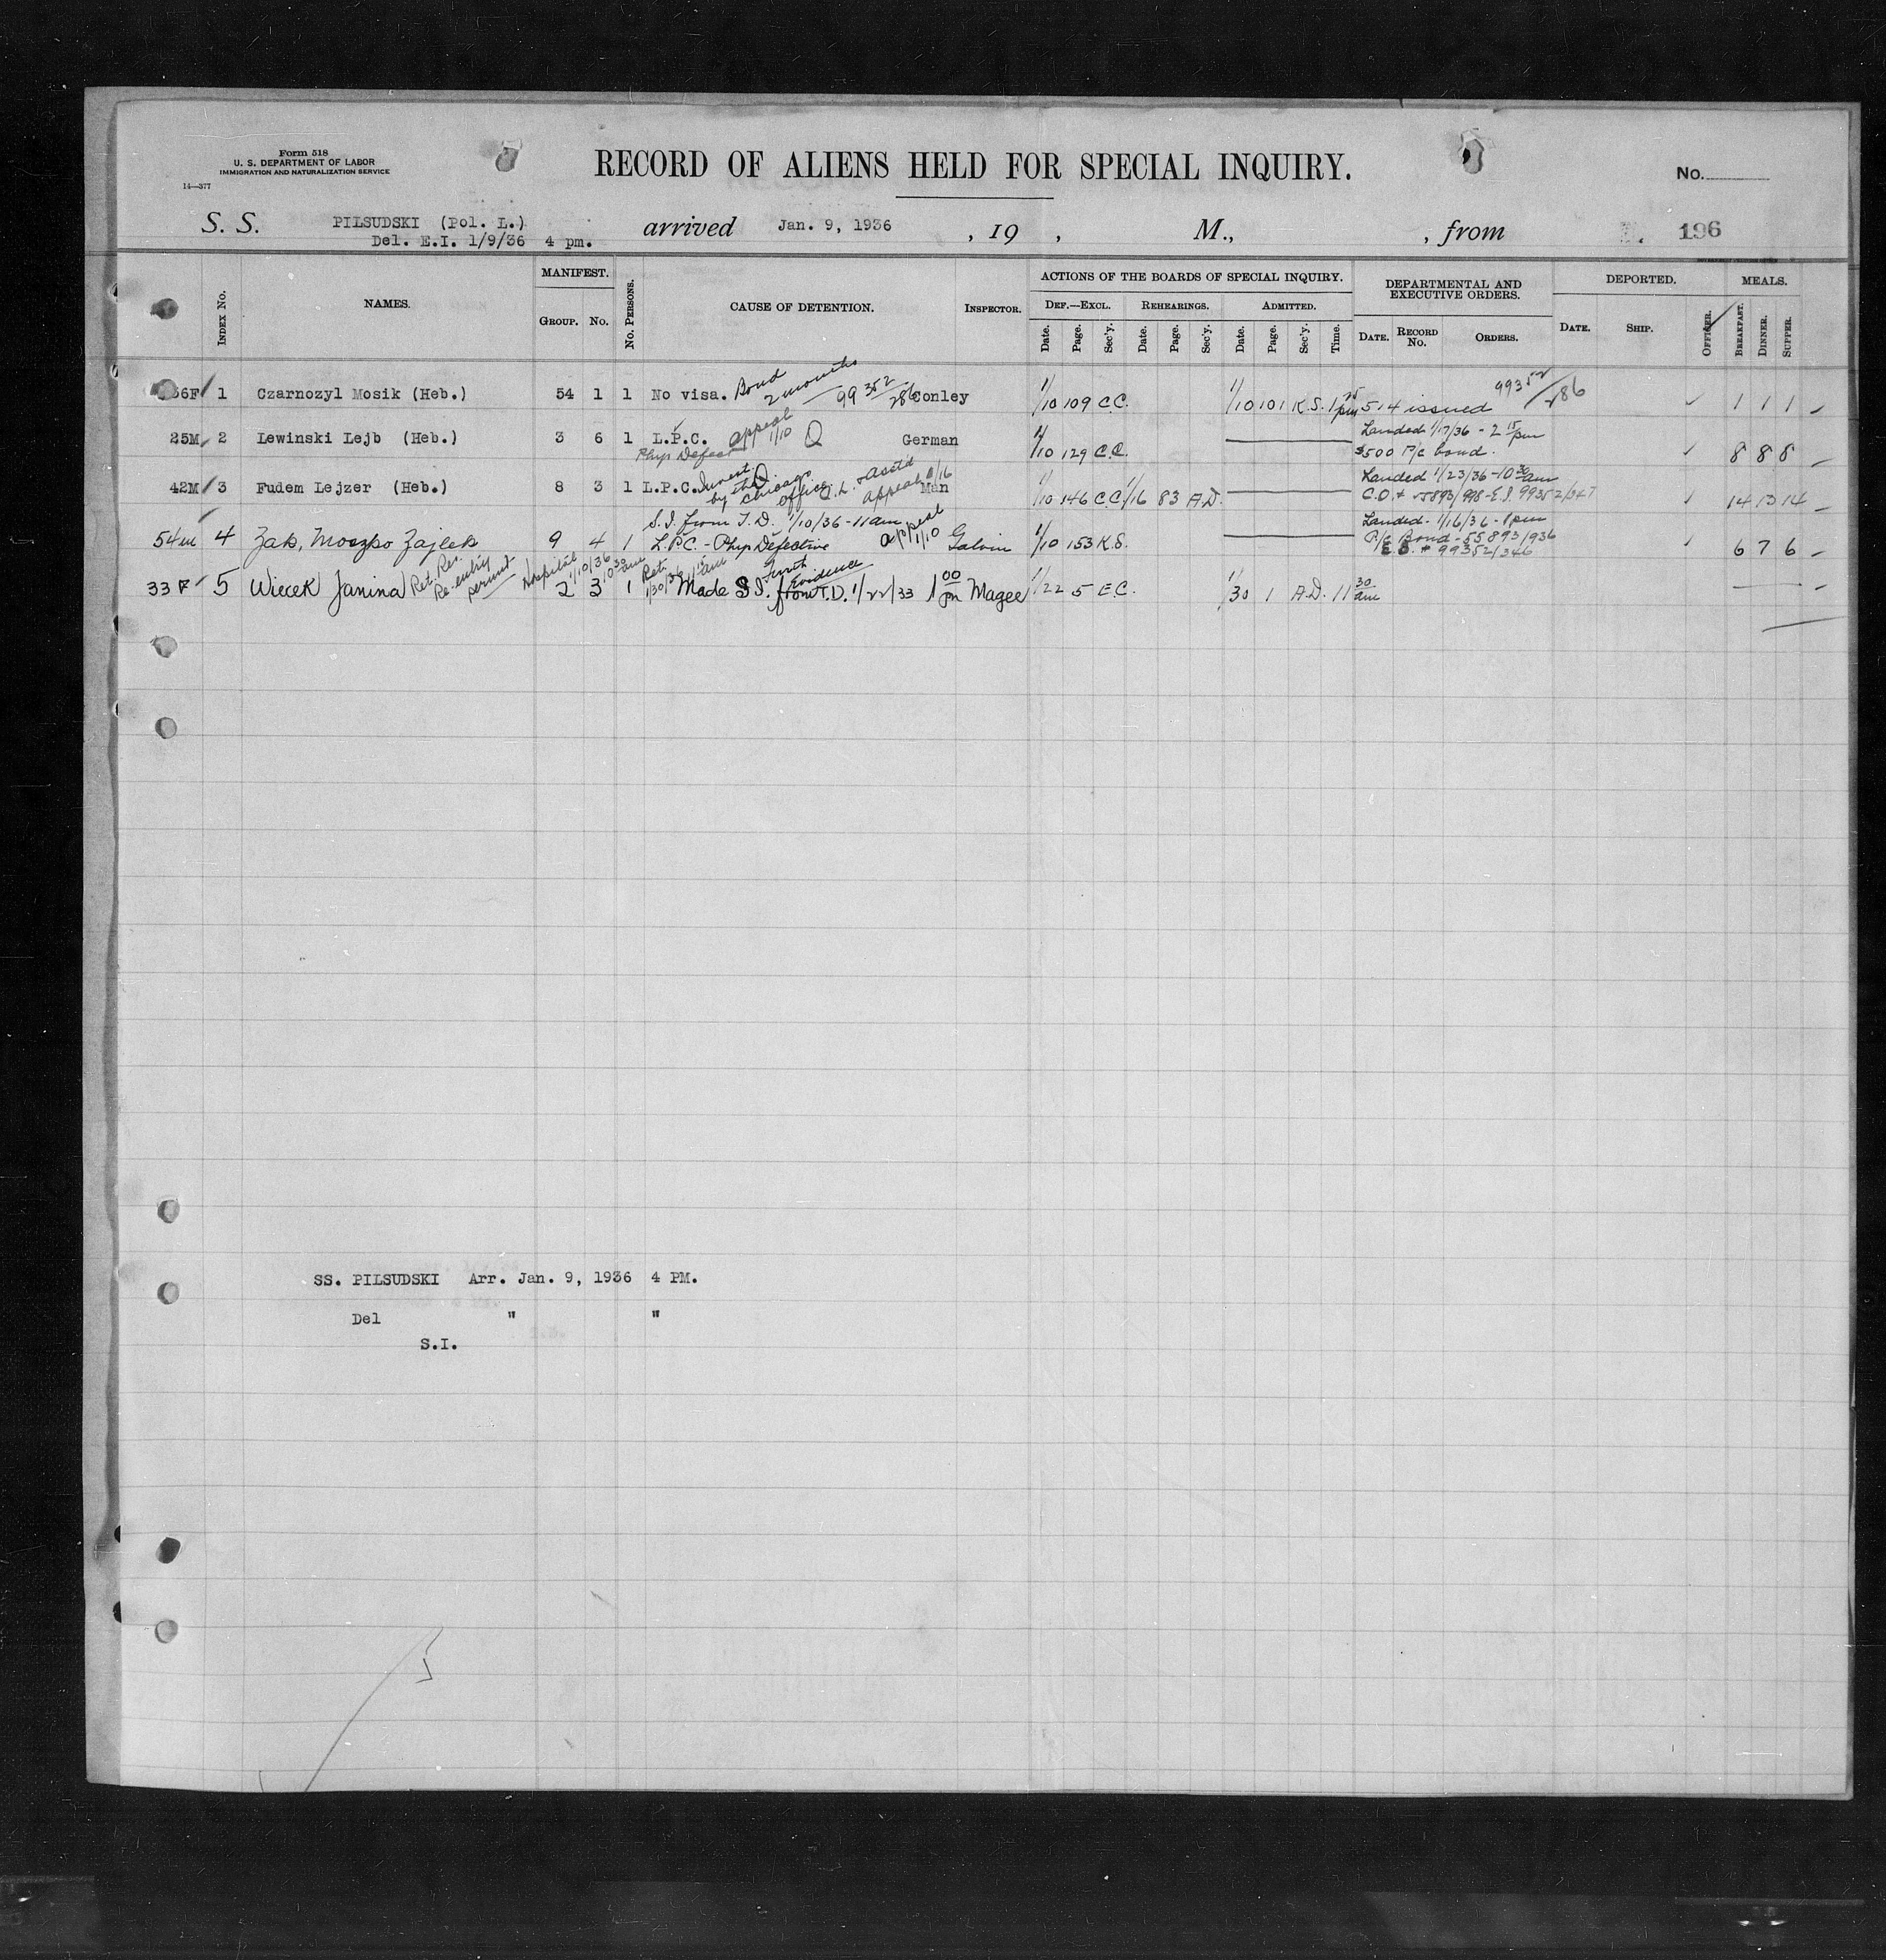 Form 518
U. S. DEPARTMENT OF LABOR
IMMIGRATION AND NATURALIZATION SERVICE
14—377
RECORD OF ALIENS HELD FOR SPECIAL INQUIRY.
No.
S. S. PILSUDSKI (Pol. L.) arrived Jan. 9, 1936 , 19 , M., , from 196
Del. E.I. 1/9/36 4 pm.
INDEX No. NAMES. MANIFEST. GROUP. No. No. PERSONS. CAUSE OF DETENTION. INSPECTOR.
ACTIONS OF THE BOARDS OF SPECIAL INQUIRY.
DEF.—EXCL. REHEARINGS. ADMITTED.
Date. Page. Sec'y. Date. Page. Sec'y. Date. Page. Sec'y. Time.
DEPARTMENTAL AND EXECUTIVE ORDERS.
DATE. RECORD No. ORDERS.
DEPORTED.
DATE. SHIP. OFFICER.
MEALS.
BREAKFAST. DINNER. SUPPER.
36F 1 Czarnozyl Mosik (Heb.) 54 1 1 No visa. Bond 2 months 99352/286 Conley 1/10 109 C.C. 1/10 101 K.S. 1 pm 514 issued 99352/286 1 1 1
25M 2 Lewinski Lejb (Heb.) 3 6 1 L.P.C. appeal 1/10 German 1/10 129 C.C. Landed 1/17/36 - 2 15 pm 8 8 8
Phys Defect $500 P/c bond.
42M 3 Fudem Lejzer (Heb.) 8 3 1 L.P.C. Invest. by the Chicago office appeal 1/16 Man 1/10 146 C.C. 1/16 83 A.D. Landed 1/23/36 - 10 30 am 14 14
S.I. from T.D. 1/10/36 - 11 am
54m 4 Zak, Moszko Zajlek 9 4 1 L.P.C. - Phys Defective appeal 1/10 Galvin 1/10 153 K.S. Landed - 1/16/36 - 1 pm 6 7 6
P/c Bond - 55893/936
E.S. # 99352/346
33 F 5 Wiecek Janina Ret. Res. Re-entry permit Hospital 1/10/36 10 30 am 2 3 1 Ret. 1/30/36 Made S.I. from T.D. 1/22/33 1 00 pm Magee 1/22 5 E.C. 1/30 1 A.D. 11 30 am
Evidence
SS. PILSUDSKI Arr. Jan. 9, 1936 4 PM.
Del " "
S.I.